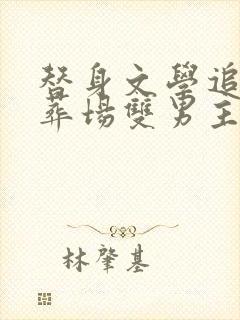 替身文學追
葬場雙男主
林肇基